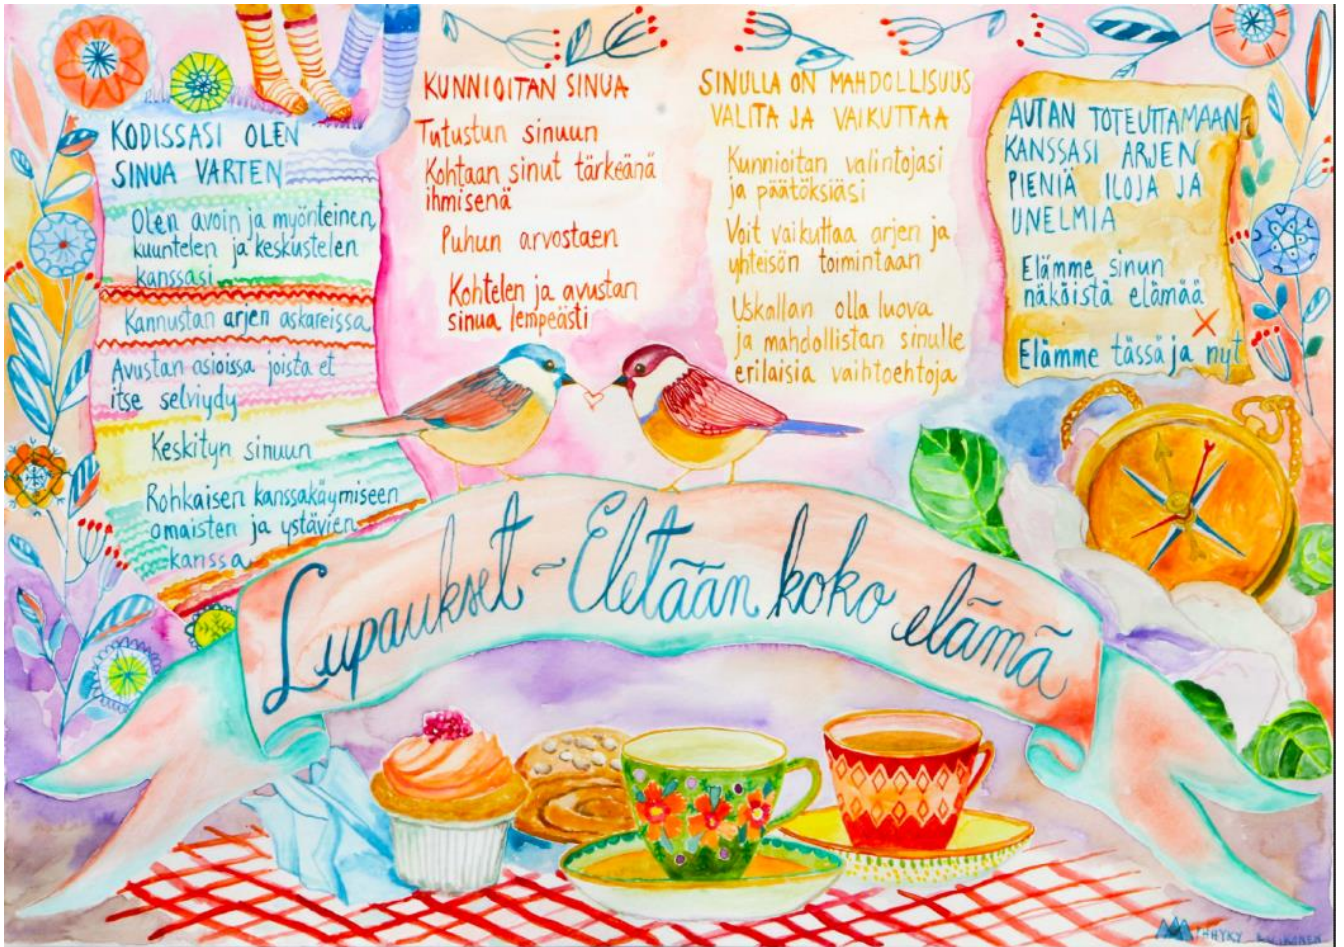 KODISSASI OLEN
SINUA VARTEN
Olen avoin ja myönteinen,
kuuntelen ja keskustelen
kanssasi
Kannustan arjen askareissa
Avustan asioissa joista et
itse selviydy
Keskityn sinuun
Rohkaisen kanssakäymiseen
omaisten ja ystävien
kanssa
KUNNIOITAN SINUA
Tutustun sinuun
Kohtaan sinut tärkeänä
ihmisenä
Puhun arvostaen
Kohtelen ja avustan
sinua lempeästi
SINULLA ON MAHDOLLISUUS
VALITA JA VAIKUTTAA
Kunnioitan valintojasi
ja päätöksiäsi
Voit vaikuttaa arjen ja
yhteisön toimintaan
Uskallan olla luova
ja mahdollistan sinulle
erilaisia vaihtoehtoja
AUTAN TOTEUTTAMAAN
KANSSASI ARJEN
PIENIÄ ILOJA JA
UNELMIA
Elämme sinun
näköistä elämää
Elämme tässä ja nyt
Lupaukset ~ Eletään koko elämä